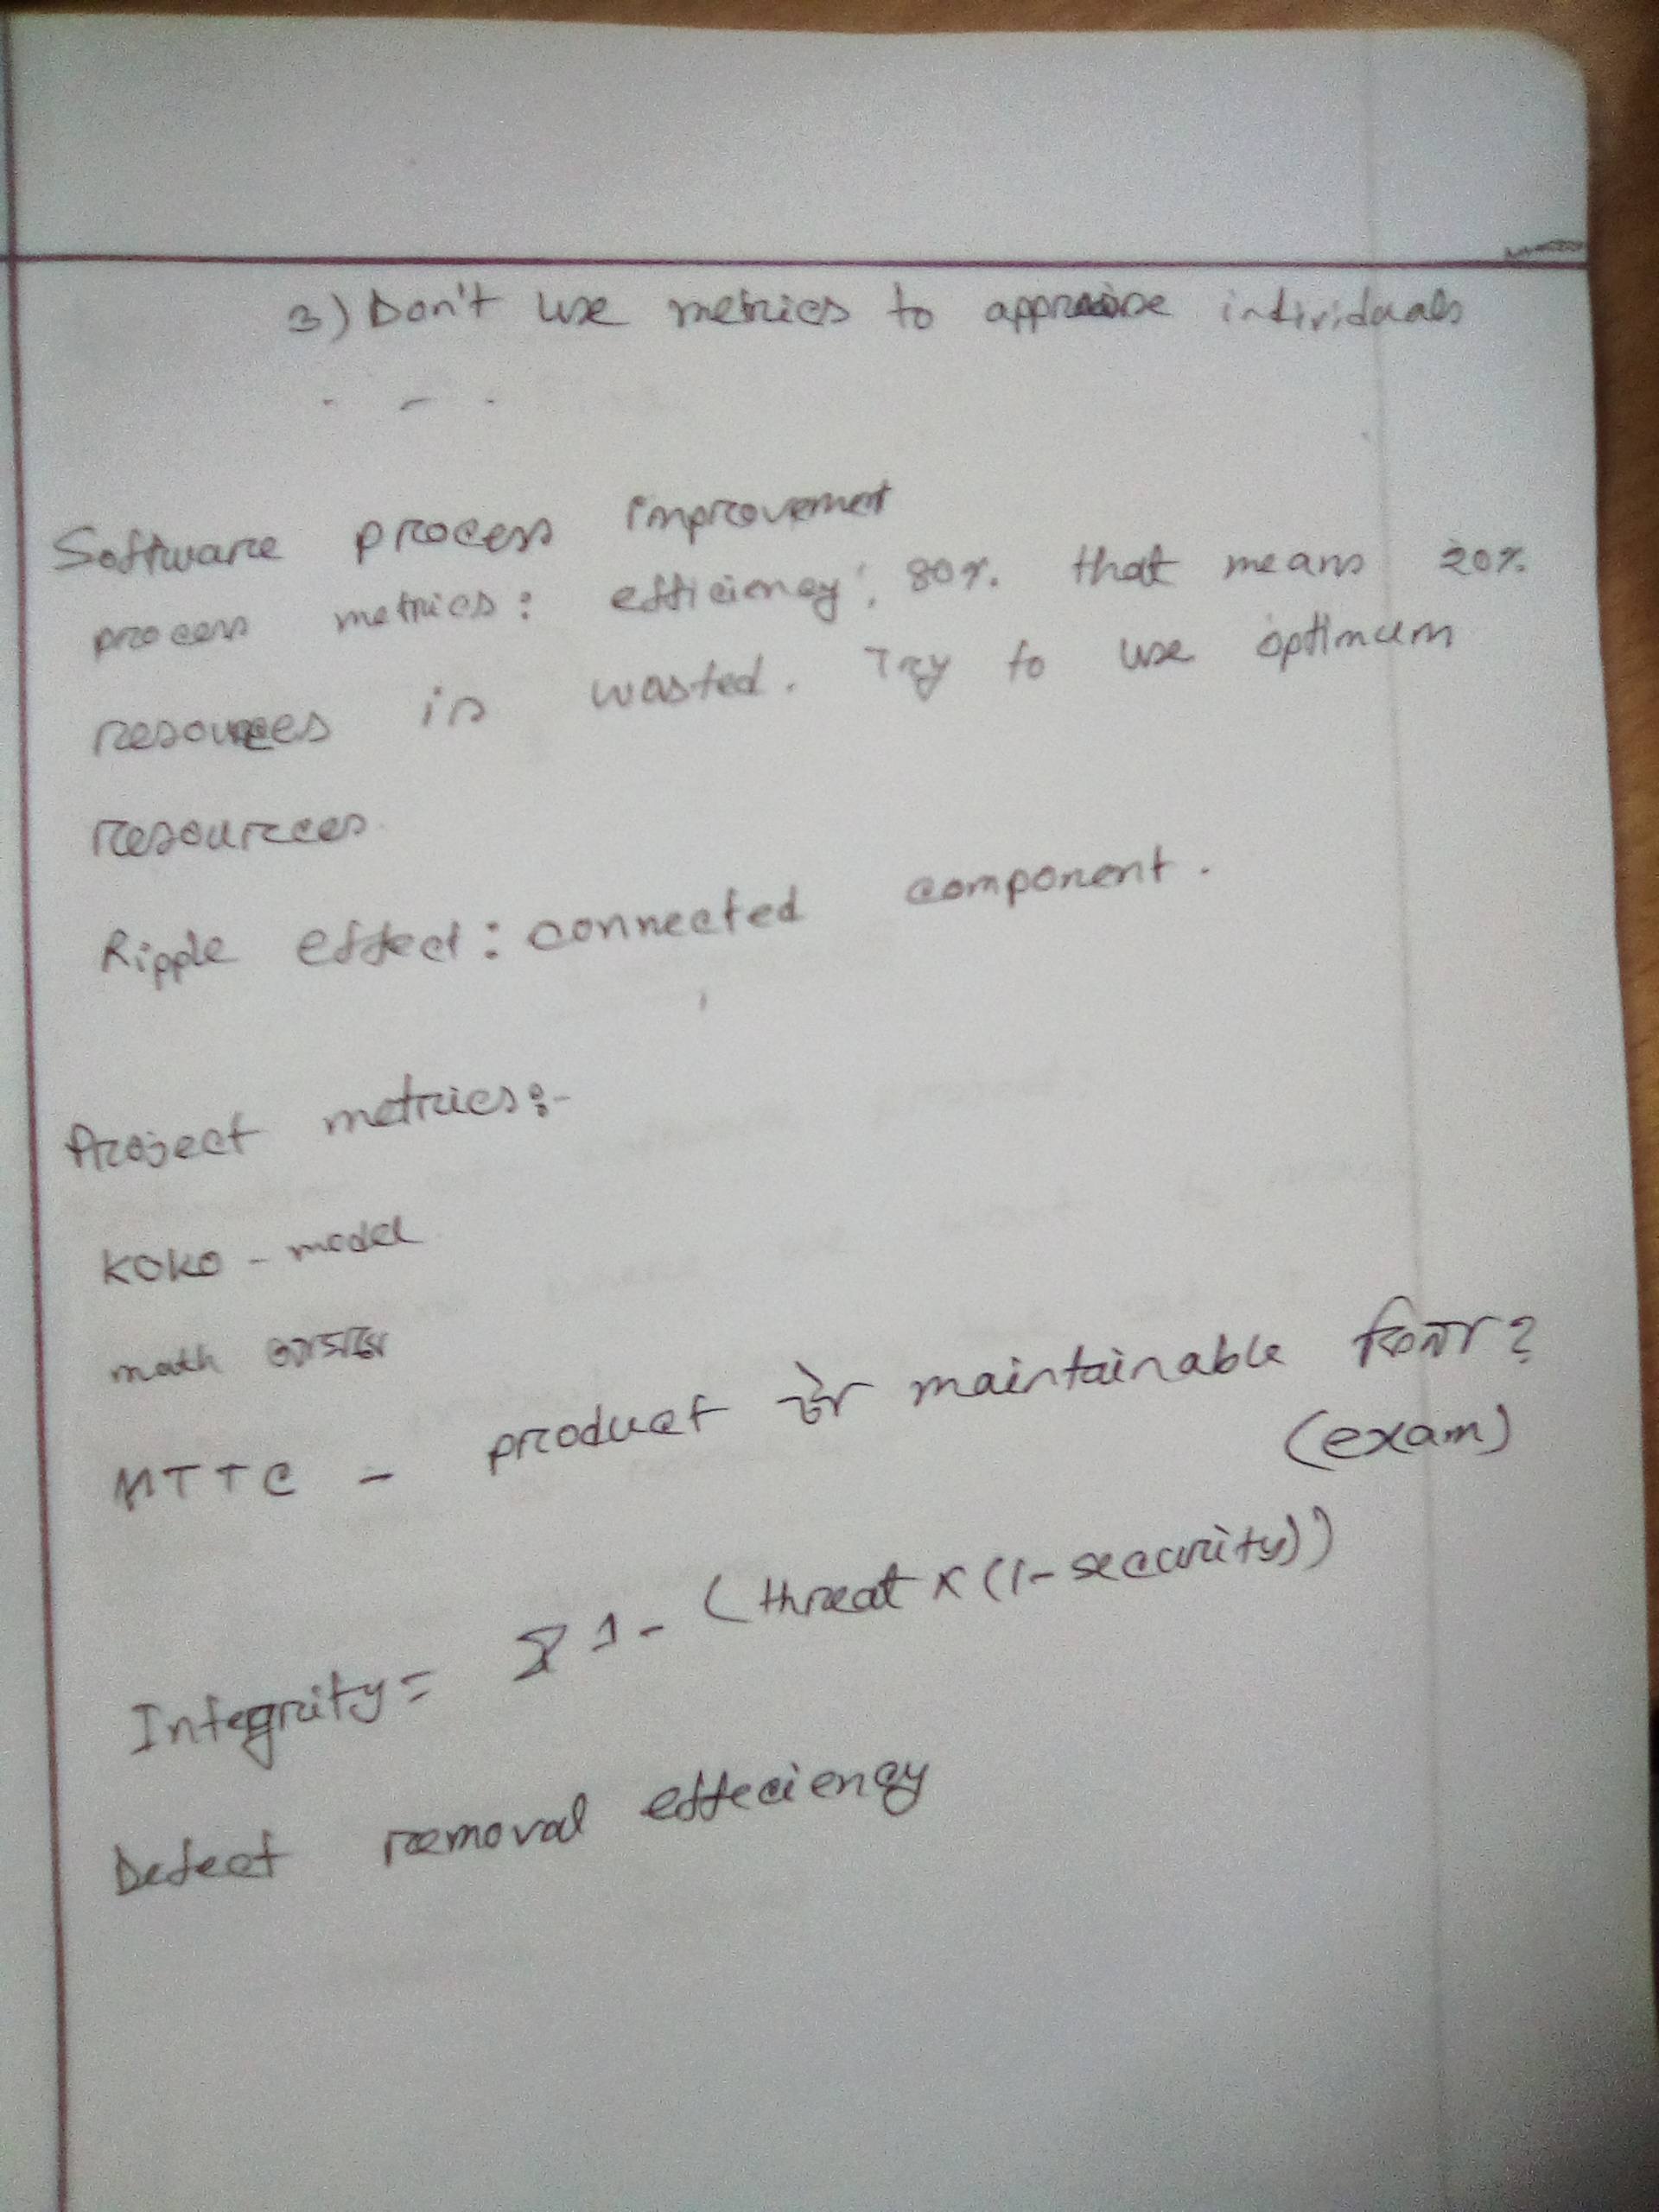 3) Don't use metrics to appraise individuals
- - -
Software process improvement
process metrics: efficiency: 80% that means 20%
resources is wasted. Try to use optimum
resources
Ripple effect: connected component.
Project metrics:-
KOKO - model
math আসবে
MTTC - product টা maintainable কিনা?
(exam)
Integrity = Σ 1 - (threat × (1 - security))
Defect removal effeciency